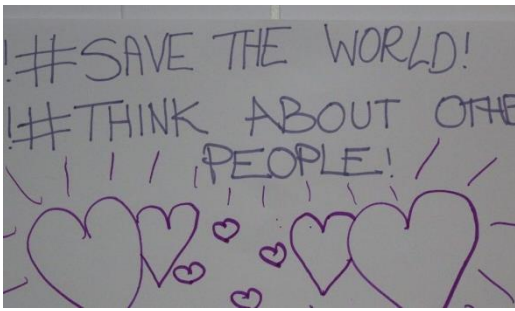 !#SAVE THE WORLD!
!#THINK ABOUT OTHE
PEOPLE!